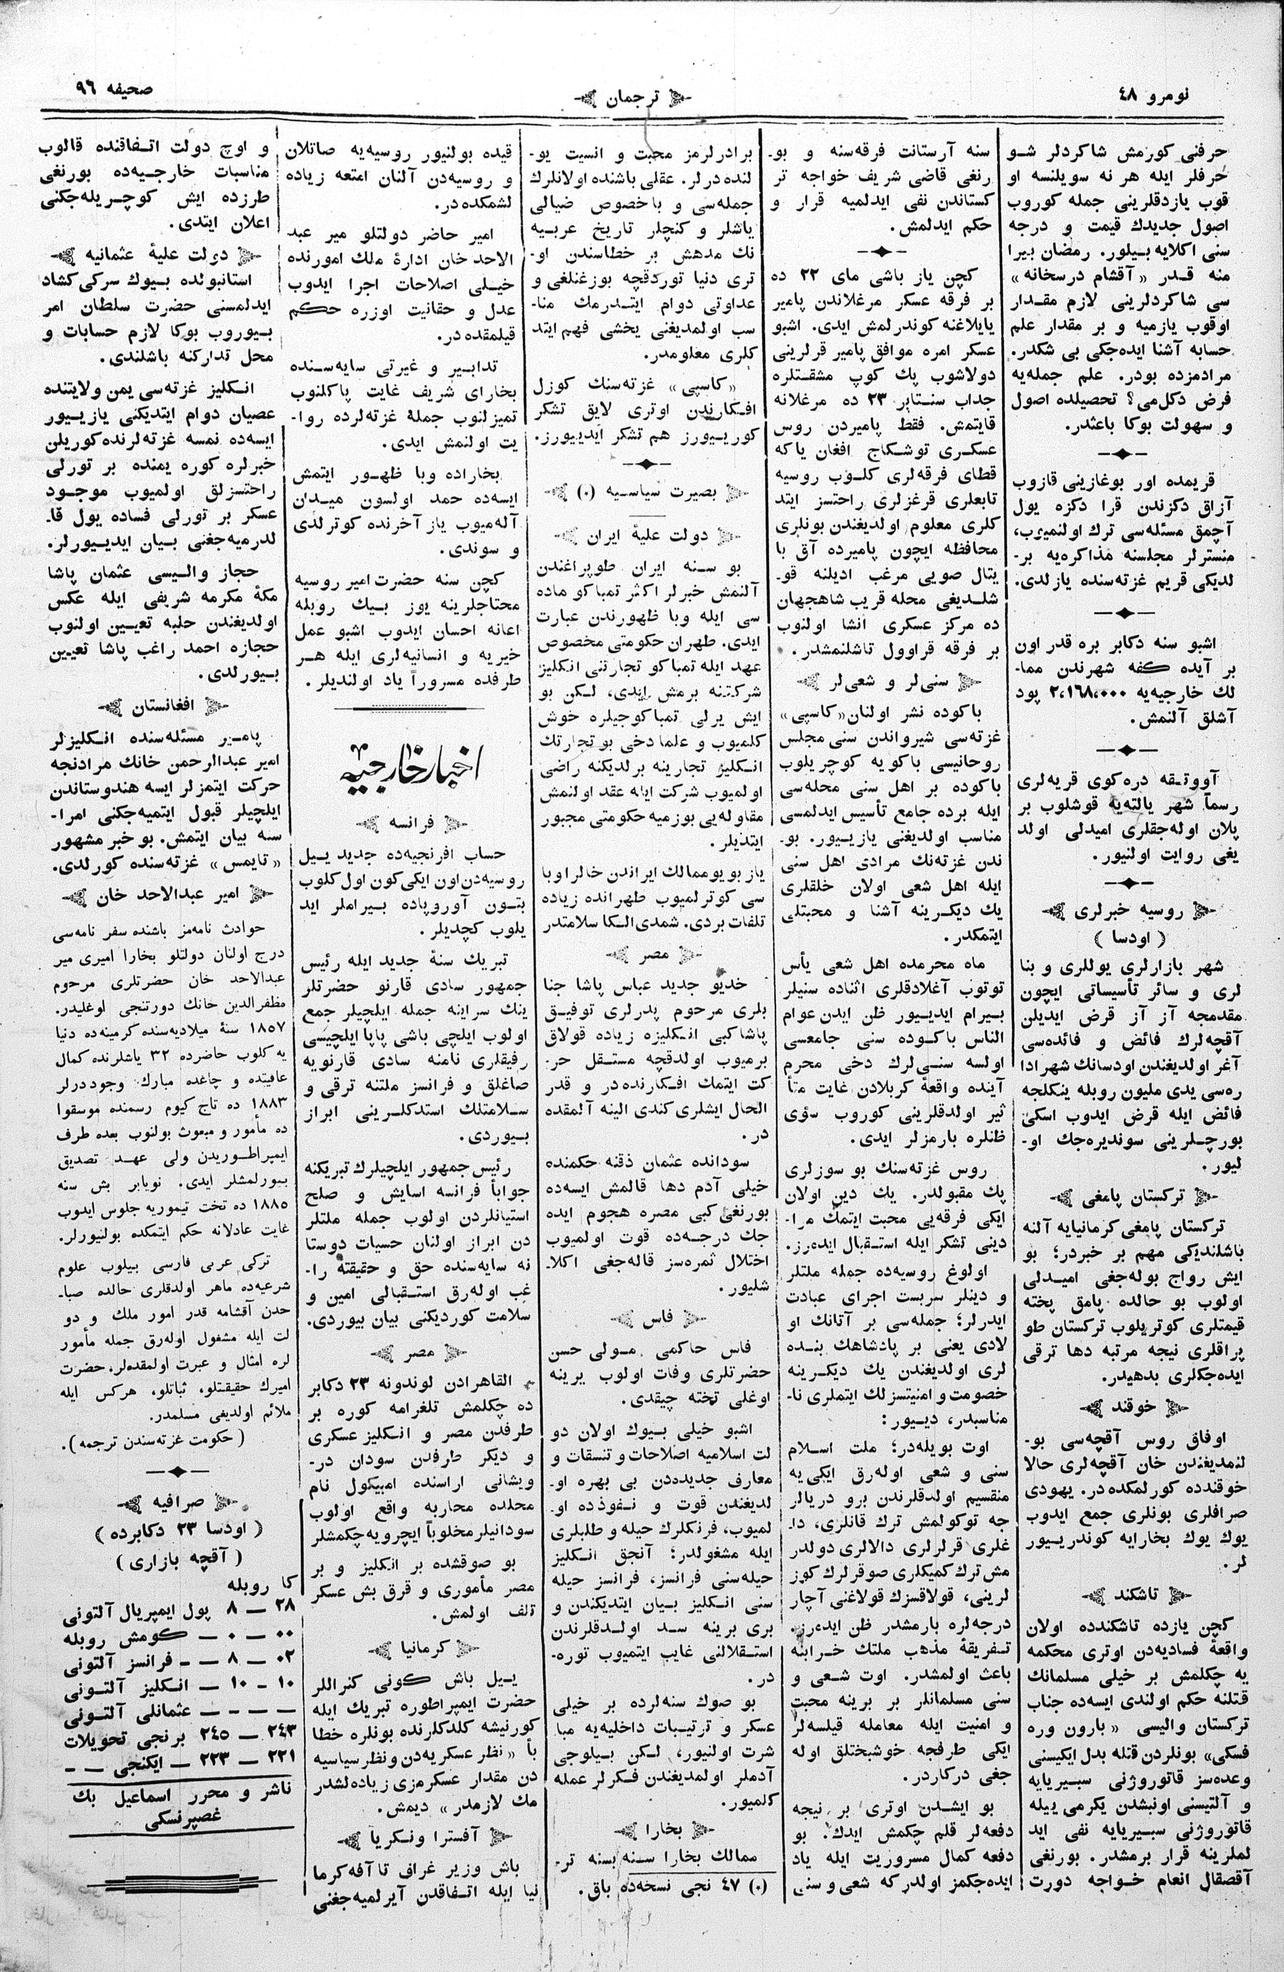 نومرو ٤٨
ترجمان
صحیفه ٩٦
حرفنی کورمش شاکردلر شو
حرفلر ایله هر نه سویلنسه او
قوب یازدقلرینی جمله کوروب
اصول جدیدك قیمت و درجه
سنی اکلایه بیلور. رمضان بیرا
منه قدر «آقشام درسخانه»
سی شاکردلرینی لازم مقدار
اوقوب یازمیه و بر مقدار علم
حسابه آشنا ایده‌جکی بی شکدر.
مرادمزده بودر. علم جمله‌یه
فرض دکل‌می؟ تحصیلده اصول
و سهولت بوکا باعثدر.
قریمده اور بوغازینی قازوب
آزاق دکزندن قرا دکزه یول
آچمق مسئله‌سی ترك اولنمیوب،
منسترلر مجلسنه مذاکره‌یه بر-
لدیکی قریم غزته‌سنده یازلدی.
اشبو سنه دکابر بره قدر اون
بر آیده کفه شهرندن مما-
لك خارجیه‌یه ٢،١٦٨،٠٠٠ پود
آشلق آلنمش.
آووتقه دره‌کوی قریه‌لری
رسماً شهر یالته‌یه قوشلوب بر
پلان اوله‌جقلری امیدلی اولد
یغی روایت اولنیور.
روسیه خبرلری
(اودسا)
شهر بازارلری یوللری و بنا
لری و سائر تأسیساتی ایچون
مقدمجه آز آز قرض ایدیلن
آقچه‌لرك فائض و فائده‌سی
آغر اولدیغندن اودسانك شهر ادا
ره‌سی یدی ملیون روبله ینکلجه
فائض ایله قرض ایدوب اسکی
بورچلرینی سوندیره‌جك او-
لیور.
ترکستان پامغی
ترکستان پامغی کرمانیایه آلنه
باشلندیکی مهم بر خبردر؛ بو
ایش رواج بوله‌جغی امیدلی
اولوب بو حالده پامق پخته
قیمتلری کوتریلوب ترکستان طو
پراقلری نیجه مرتبه دها ترقی
ایده‌جکلری بدهیدر.
خوقند
اوفاق روس آقچه‌سی بو-
لنمدیغندن خان آقچه‌لری حالا
خوقنده کورلمکده‌در. یهودی
صرافلری بونلری جمع ایدوب
یوك یوك بخارایه کوندریور
لر.
تاشکند
کچن یازده تاشکندده اولان
واقعهٔ فسادیه‌دن اوتری محکمه
یه چکلمش بر خیلی مسلمانك
قتلنه حکم اولندی ایسه‌ده جناب
ترکستان والیسی «بارون وره
فسکی» بونلردن قتله بدل ایکیسنی
وعده‌سز قاتوروژنی سیبریایه
و آلتیسنی اونبشدن یکرمی ییله
قاتوروژنی سیبریایه نفی اید
لملرینه قرار برمشدر. بورنغی
آقصقال انعام خواجه دورت
سنه آرستانت فرقه‌سنه و بو-
رنغی قاضی شریف خواجه تر
کستاندن نفی ایدلمیه قرار و
حکم ایدلمش.
کچن یاز باشی مای ٢٢ ده
بر فرقه عسکر مرغلاندن پامیر
یایلاغنه کوندرلمش ایدی. اشبو
عسکر امره موافق پامیر قرلرینی
دولاشوب پك کوپ مشقتلره
جداب سنتابر ٢٣ ده مرغلانه
قایتمش. فقط پامیردن روس
عسکری توشکاج افغان یاکه
قطای فرقه‌لری کلوب روسیه
تابعلری قرغزلری راحتسز ایتد
کلری معلوم اولدیغندن بونلری
محافظه ایچون پامیرده آق با
یتال صویی مرغب ادیلنه قو-
شلدیغی محله قریب شاهجهان
ده مرکز عسکری انشا اولنوب
بر فرقه قراوول تاشلنمشدر.
سنی‌لر و شعی‌لر
باکوده نشر اولنان «کاسپی»
غزته‌سی شیرواندن سنی مجلس
روحانیسی باکویه کوچریلوب
باکوده بر اهل سنی محله‌سی
ایله برده جامع تأسیس ایدلمسی
مناسب اولدیغنی یازیور. بو-
ندن غزته‌نك مرادی اهل سنی
ایله اهل شعی اولان خلقلری
یك دیکرینه آشنا و محبتلی
ایتمکدر.
ماه محرمده اهل شعی یأس
توتوب آغلادقلری اثناده سنیلر
بیرام ایدیور ظن ایدن عوام
الناس باکوده سنی جامعسی
اولسه سنی‌لرك دخی محرم
آینده واقعهٔ کربلادن غایت متأ
ثیر اولدقلرینی کوروب سؤی
ظنلره بارمزلر ایدی.
روس غزته‌سنك بو سوزلری
پك مقبولدر. یك دین اولان
ایکی فرقه‌یی محبت ایتمك مرا-
دینی تشکر ایله استقبال ایده‌رز.
اولوغ روسیه‌ده جمله ملتلر
و دینلر سربست اجرای عبادت
ایدرلر؛ جمله‌سی بر آتانك او
لادی یعنی بر پادشاهك بنده
لری اولدیغندن یك دیکرینه
خصومت و امنیتسزلك ایتملری نا-
مناسبدر، دییور:
اوت بویله‌در؛ ملت اسلام
سنی و شعی اوله‌رق ایکی یه
منقسیم اولدقلرندن برو دریالر
جه توکولمش ترك قانلری، دا-
غلری قرلرلری دالالری دولدر
مش ترك کمیکلری صوقرلرك کوز
لرینی، قولاقسزك قولاغنی آچار
درجه‌لره بارمشدر ظن ایده‌رز.
تفریقهٔ مذهب ملتك خرابنه
باعث اولمشدر. اوت شعی و
سنی مسلمانلر بر برینه محبت
و امنیت ایله معامله قیلسه‌لر
ایکی طرفجه خوشبختلق اوله
جغی درکاردر.
بو ایشدن اوتری بر نیجه
دفعه‌لر قلم چکمش ایدك. بو
دفعه کمال مسروریت ایله یاد
ایده‌جکمز اولدر که شعی و سنی
برادرلرمز محبت و انسیت یو-
لنده درلر. عقلی باشنده اولانلرك
جمله‌سی و باخصوص ضیالی
یاشلر و کنجلر تاریخ عربیه
نك مدهش بر خطاسندن او-
تری دنیا توردقچه بوزغنلغی و
عداوتی دوام ایتدرمك منا-
سب اولمدیغنی یخشی فهم ایتد
کلری معلومدر.
«کاسپی» غزته‌سنك کوزل
افکارندن اوتری لایق تشکر
کوریورز هم تشکر ایدییورز.
بصیرت سیاسیه (٠)
دولت علیهٔ ایران
بو سنه ایران طوپراغندن
آلنمش خبرلر اکثر تمباکو ماده
سی ایله وبا ظهورندن عبارت
ایدی. طهران حکومتی مخصوص
عهد ایله تمباکو تجارتنی انکلیز
شرکتنه برمش ایدی، لکن بو
ایش یرلی تمباکوجیلره خوش
کلمیوب و علما دخی بو تجارتك
انکلیز تجارینه برلدیکنه راضی
اولمیوب شرکت ایله عقد اولنمش
مقاوله‌یی بوزمیه حکومتی مجبور
ایتدیلر.
یاز بویو ممالك ایراندن خالراوبا
سی کوترلمیوب طهرانده زیاده
تلفات بردی. شمدی الکا سلامتدر
مصر
خدیو جدید عباس پاشا جنا
بلری مرحوم پدرلری توفیق
پاشاکبی انکلیزه زیاده قولاق
برمیوب اولدقچه مستقل حر-
کت ایتمك افکارنده‌در و قدر
الحال ایشلری کندی الینه آلمقده
در.
سودانده عثمان ذقنه حکمنده
خیلی آدم دها قالمش ایسه‌ده
بورنغی کبی مصره هجوم ایده
جك درجه‌ده قوت اولمیوب
اختلال ثمره‌سز قاله‌جغی اکلا-
شلیور.
فاس
فاس حاکمی مولی حسن
حضرتلری وفات اولوب یرینه
اوغلی تخته چیقدی.
اشبو خیلی بیوك اولان دو
لت اسلامیه اصلاحات و تنسقات و
معارف جدیده‌دن بی بهره او-
لدیغندن قوت و نفوذده او-
لمیوب، فرنکلرك حیله و طلبلری
ایله مشغولدر؛ آنجق انکلیز
حیله‌سنی فرانسز، فرانسز حیله
سنی انکلیز بیان ایتدیکندن و
بری برینه سد اولدقلرندن
استقلالنی غایب ایتمیوب توره-
در.
بو صوك سنه‌لرده بر خیلی
عسکر و ترتیبات داخلیه‌یه مبا
شرت اولنیور، لکن بیلوجی
آدملر اولمدیغندن فکرلر عمله
کلمیور.
بخارا
ممالك بخارا سنه بسنه تر-
(٠) ٤٧ نجی نسخه‌ده باق.
قیده بولنیور روسیه‌یه صاتلان
و روسیه‌دن آلنان امتعه زیاده
لشمکده‌در.
امیر حاضر دولتلو میر عبد
الاحد خان ادارهٔ ملك امورنده
خیلی اصلاحات اجرا ایدوب
عدل و حقانیت اوزره حکم
قیلمقده‌در.
تدابیر و غیرتی سایه‌سنده
بخارای شریف غایت پاکلنوب
تمیزلنوب جملهٔ غزته‌لرده روا-
یت اولنمش ایدی.
بخاراده وبا ظهور ایتمش
ایسه‌ده حمد اولسون میدان
آله‌میوب یاز آخرنده کوترلدی
و سوندی.
کچن سنه حضرت امیر روسیه
محتاجلرینه یوز بیك روبله
اعانه احسان ایدوب اشبو عمل
خیریه و انسانیه‌لری ایله هر
طرفده مسروراً یاد اولندیلر.
اخبار خارجیه
فرانسه
حساب افرنجیه‌ده جدید ییل
روسیه‌دن اون ایکی کون اول کلوب
بتون آوروپاده بیراملر اید
یلوب کچدیلر.
تبریك سنهٔ جدید ایله رئیس
جمهور سادی قارنو حضرتلر
ینك سراینه جمله ایلچیلر جمع
اولوب ایلچی باشی پاپا ایلچیسی
رفیقلری نامنه سادی قارنویه
صاغلق و فرانسز ملتنه ترقی و
سلامتلك استدکلرینی ابراز
بیوردی.
رئیس جمهور ایلچیلرك تبریکنه
جواباً فرانسه اسایش و صلح
استیانلردن اولوب جمله ملتلر
دن ابراز اولنان حسیات دوستا
نه سایه‌سنده حق و حقیقته را-
غب اوله‌رق استقبالی امین و
سلامت کوردیکنی بیان بیوردی.
مصر
القاهرادن لوندونه ٢٣ دکابر
ده چکلمش تلغرامه کوره بر
طرفدن مصر و انکلیز عسکری
و دیکر طرفدن سودان در-
ویشانی اراسنده امبیکول نام
محلده محاربه واقع اولوب
سودانیلر مخلوباً ایچرویه چکمشلر
بو صوقشده بر انکلیز و بر
مصر مأموری و قرق بش عسکر
تلف اولمش.
کرمانیا
ییل باش کونی کنراللر
حضرت ایمپراطوره تبریك ایله
کورنیشه کلدکلرنده بونلره خطا
باً «نظر عسکریه‌دن و نظر سیاسیه
دن مقدار عسکرمزی زیاده‌لشدر
مك لازمدر» دیمش.
آفسترا ونکریا
باش وزیر غرافی تاآفه کرما
نیا ایله اتفاقدن آیرلمیه‌جغنی
و اوچ دولت اتفاقنده قالوب
مناسبات خارجیه‌ده بورنغی
طرزده ایش کوچریله‌جکنی
اعلان ایتدی.
دولت علیهٔ عثمانیه
استانبولده بیوك سرکی کشاد
ایدلمسنی حضرت سلطان امر
بیوروب بوکا لازم حسابات و
محل تدارکنه باشلندی.
انکلیز غزته‌سی یمن ولایتنده
عصیان دوام ایتدیکنی یازیور
ایسه‌ده نمسه غزته‌لرنده کوریلن
خبرلره کوره یمنده بر تورلی
راحتسزلق اولمیوب موجود
عسکر بر تورلی فساده یول قا-
لدرمیه‌جغنی بیان ایدیورلر.
حجاز والیسی عثمان پاشا
مکهٔ مکرمه شریفی ایله عکس
اولدیغندن حلبه تعیین اولنوب
حجازه احمد راغب پاشا تعیین
بیورلدی.
افغانستان
پامیر مسئله‌سنده انکلیزلر
امیر عبدالرحمن خانك مرادنجه
حرکت ایتمزلر ایسه هندوستاندن
ایلچیلر قبول ایتمیه‌جکنی امرا-
سنه بیان ایتمش. بو خبر مشهور
«تایمس» غزته‌سنده کورلدی.
امیر عبدالاحد خان
حوادث نامه‌مز باشنده سفر نامه‌سی
درج اولنان دولتلو بخارا امیری میر
عبدالاحد خان حضرتلری مرحوم
مظفرالدین خانك دورتنجی اوغلیدر.
١٨٥٧ سنهٔ میلادیه‌سنده کرمینه‌ده دنیا
یه کلوب حاضرده ٣٢ یاشلرنده کمال
عافیتده و چاغده مبارك وجوددرلر
١٨٨٣ ده تاج کیوم رسمنده موسقوا
ده مأمور و مبعوث بولنوب بعده طرف
ایمپراطوریدن ولی عهد تصدیق
بیورلمشلر ایدی. نویابر بش سنه
١٨٨٥ ده تخت تیموریه جلوس ایدوب
غایت عادلانه حکم ایتمکده بولنیورلر.
ترکی عربی فارسی بیلوب علوم
شرعیه‌ده ماهر اولدقلری حالده صبا-
حدن آقشامه قدر امور ملك و دو
لت ایله مشغول اوله‌رق جمله مأمور
لره امثال و عبرت اولمقده‌لر. حضرت
امیرك حقیقتلو، ثباتلو، هرکس ایله
ملائم اولدیغی مسلمدر.
(حکومت غزته‌سندن ترجمه).
صرافیه
(اودسا ٢٣ دکابرده)
(آقچه بازاری)
کا روبله
٢٨ — ٨ پول ایمپریال آلتونی
٠٠ — ٠ — کومش روبله
٠٢ — ٨ — - فرانسز آلتونی
١٠ - ١٠ — انکلیز آلتونی
— — - — عثمانلی آلتونی
٢٤٣ — ٢٤٥ برنجی تحویلات
٢٢١ — ٢٢٣ — ایکنجی — -
ناشر و محرر اسماعیل بك
غصپرنسکی